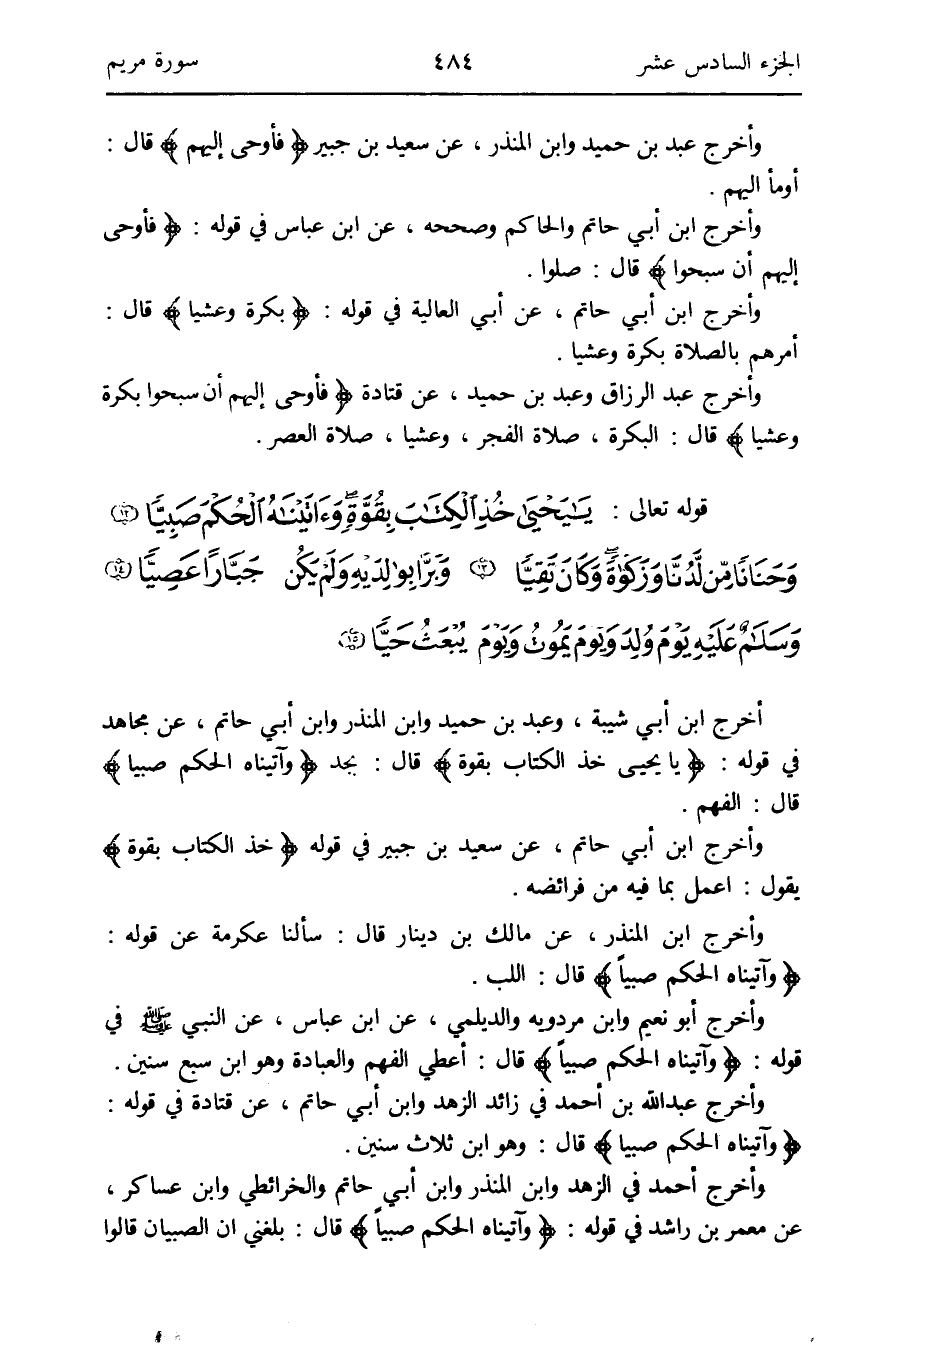 الجزء السادس عشر ٤٨٤ سورة مريم
وأخرج عبد بن حميد وابن المنذر ، عن سعيد بن جبير ﴿ فأوحى إليهم ﴾ قال :
أومأ اليهم .
وأخرج ابن أبي حاتم والحاكم وصححه ، عن ابن عباس في قوله : ﴿ فأوحى
إليهم أن سبحوا ﴾ قال : صلوا .
وأخرج ابن أبي حاتم ، عن أبي العالية في قوله : ﴿ بكرة وعشيا ﴾ قال :
أمرهم بالصلاة بكرة وعشيا .
وأخرج عبد الرزاق وعبد بن حميد ، عن قتادة ﴿ فأوحى إليهم أن سبحوا بكرة
وعشيا ﴾ قال : البكرة ، صلاة الفجر ، وعشيا ، صلاة العصر .
قوله تعالى : يَٰيَحْيَىٰ خُذِ ٱلْكِتَٰبَ بِقُوَّةٍۖ وَءَاتَيْنَٰهُ ٱلْحُكْمَ صَبِيًّا ١٢
وَحَنَانًا مِّن لَّدُنَّا وَزَكَوٰةًۖ وَكَانَ تَقِيًّا ١٣ وَبَرًّۢا بِوَٰلِدَيْهِ وَلَمْ يَكُن جَبَّارًا عَصِيًّا ١٤
وَسَلَٰمٌ عَلَيْهِ يَوْمَ وُلِدَ وَيَوْمَ يَمُوتُ وَيَوْمَ يُبْعَثُ حَيًّا ١٥
أخرج ابن أبي شيبة ، وعبد بن حميد وابن المنذر وابن أبي حاتم ، عن مجاهد
في قوله : ﴿ يا يحيى خذ الكتاب بقوة ﴾ قال : بجد ﴿ وآتيناه الحكم صبيا ﴾
قال : الفهم .
وأخرج ابن أبي حاتم ، عن سعيد بن جبير في قوله ﴿ خذ الكتاب بقوة ﴾
يقول : اعمل بما فيه من فرائضه .
وأخرج ابن المنذر ، عن مالك بن دينار قال : سألنا عكرمة عن قوله :
﴿ وآتيناه الحكم صبياً ﴾ قال : اللب .
وأخرج أبو نعيم وابن مردويه والديلمي ، عن ابن عباس ، عن النبي ﷺ في
قوله : ﴿ وآتيناه الحكم صبياً ﴾ قال : أعطي الفهم والعبادة وهو ابن سبع سنين .
وأخرج عبدالله بن أحمد في زائد الزهد وابن أبي حاتم ، عن قتادة في قوله :
﴿ وآتيناه الحكم صبيا ﴾ قال : وهو ابن ثلاث سنين .
وأخرج أحمد في الزهد وابن المنذر وابن أبي حاتم والخرائطي وابن عساكر ،
عن معمر بن راشد في قوله : ﴿ وآتيناه الحكم صبياً ﴾ قال : بلغني ان الصبيان قالوا